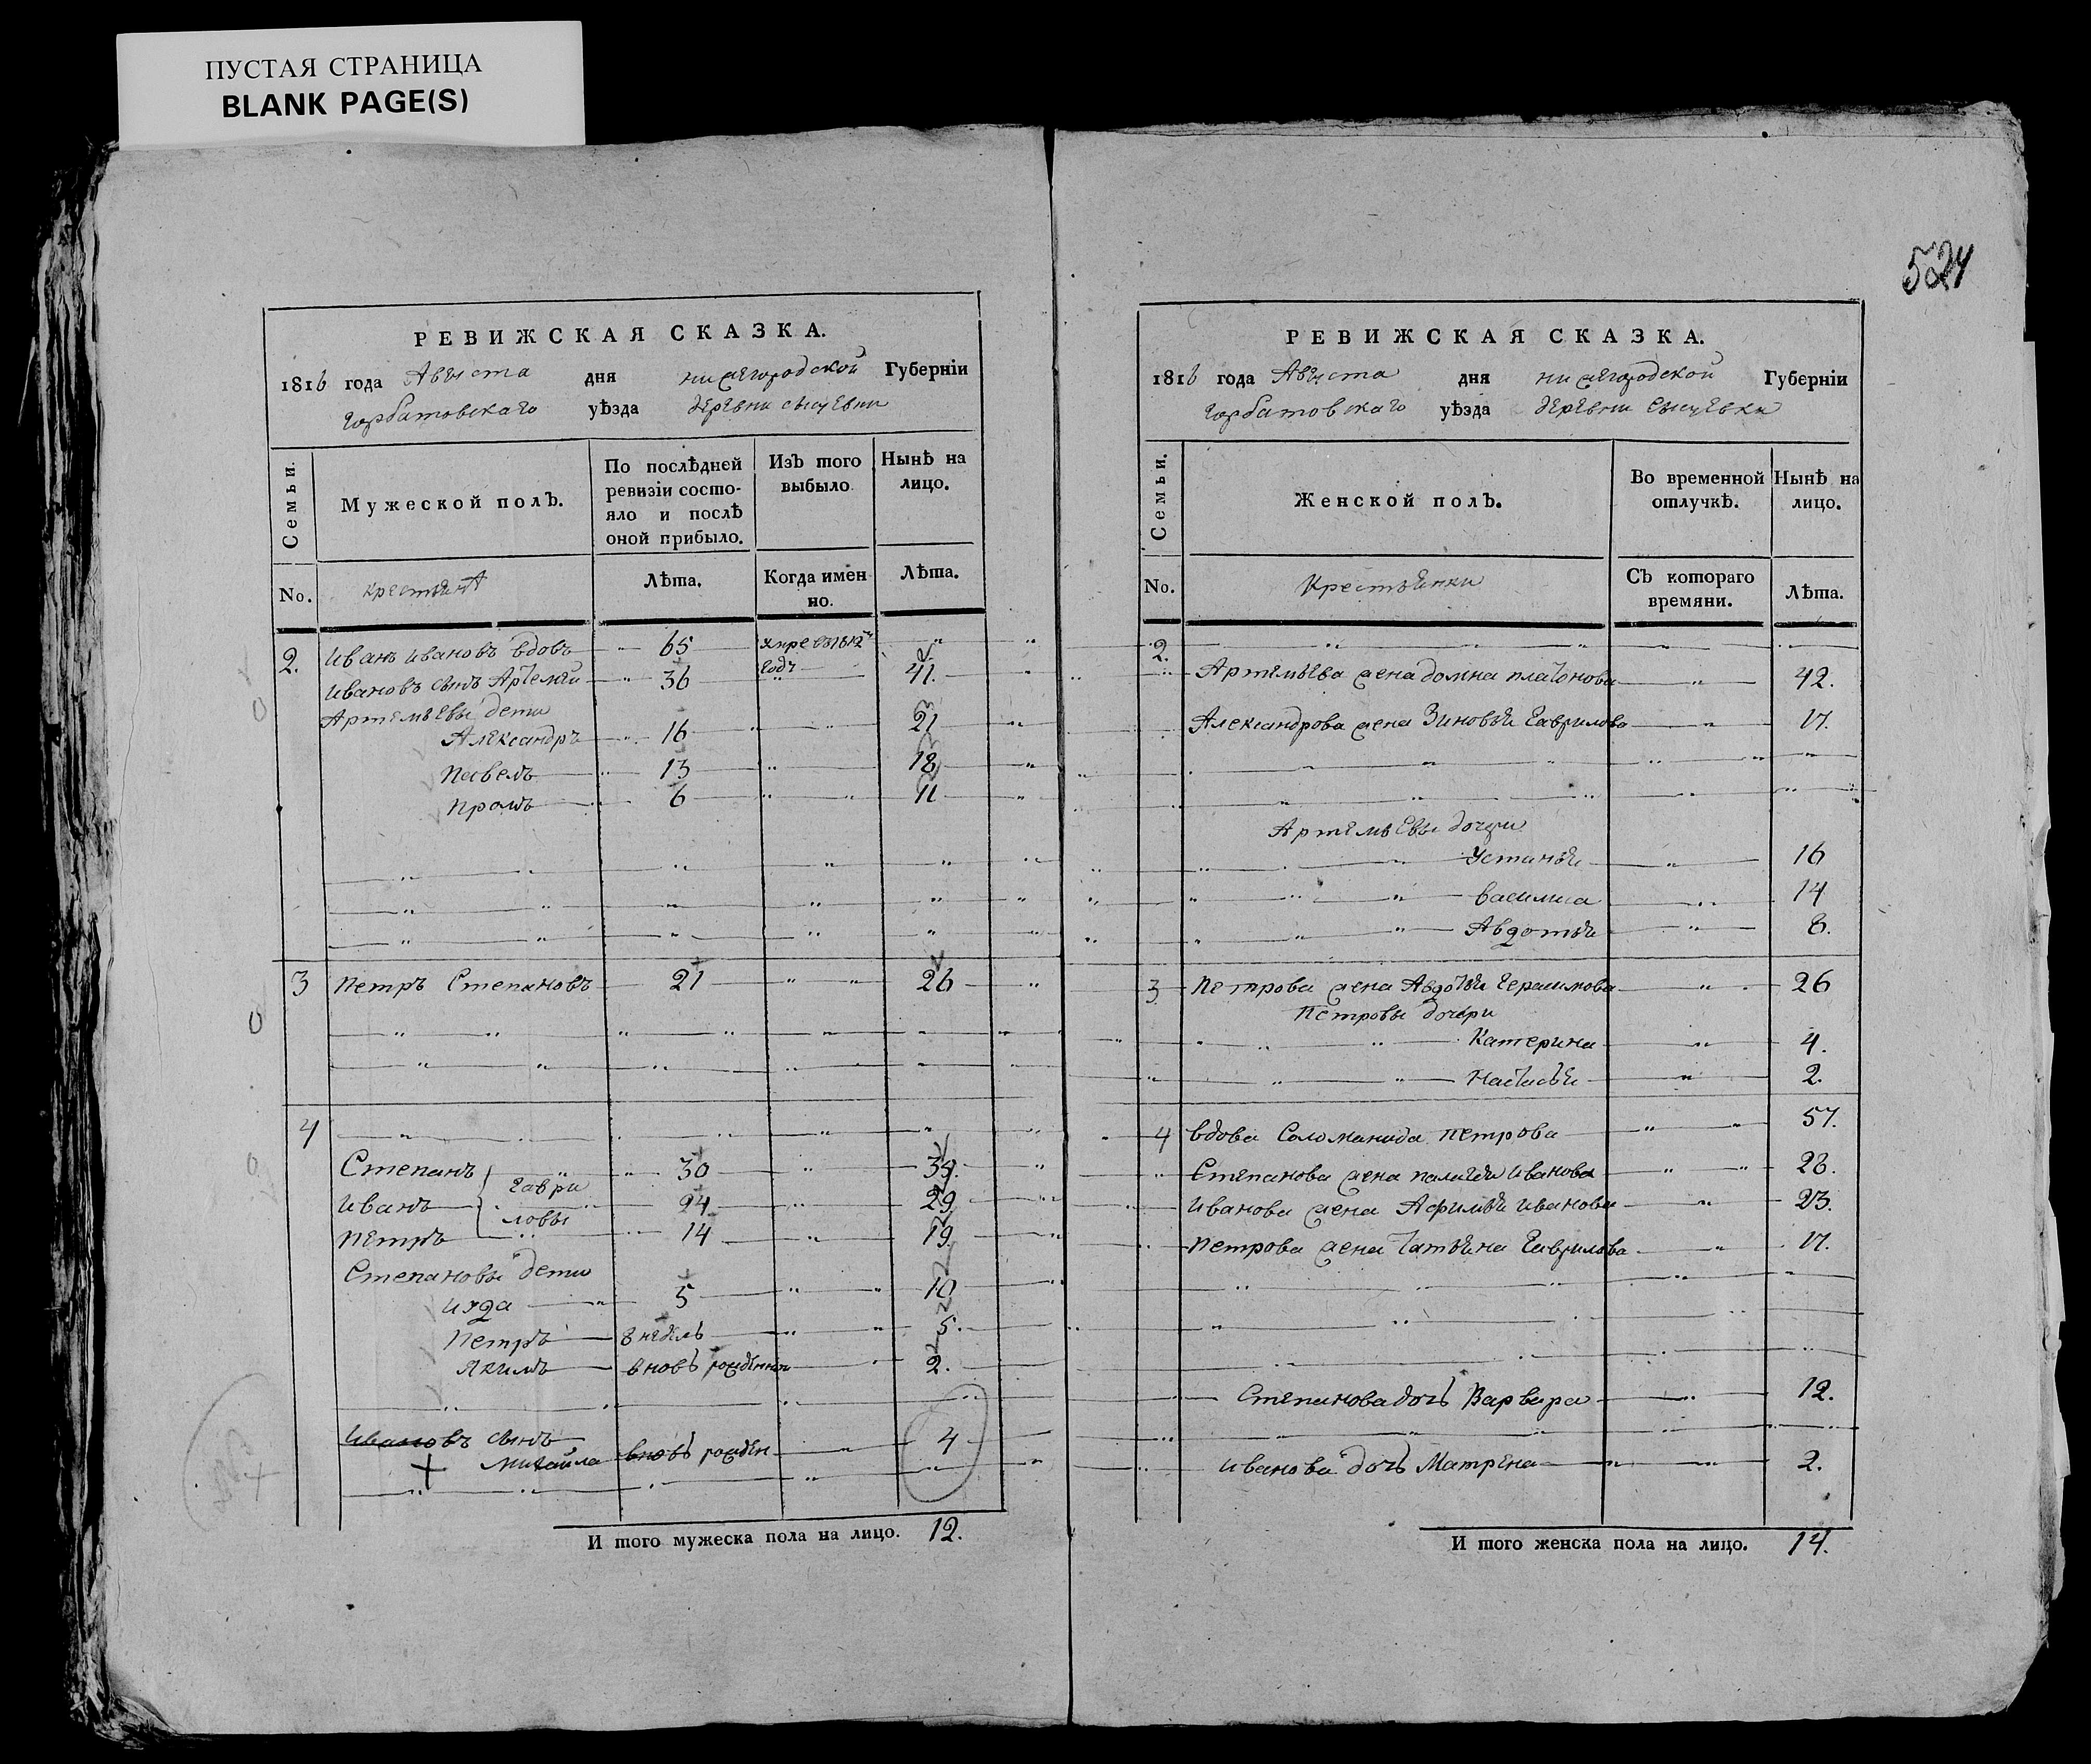 ПУСТАЯ СТРАНИЦА
BLANK PAGE(S)
524
РЕВИЖСКАЯ СКАЗКА.
1816 года Августа дня нижегородской Губерніи
горбатовскаго уѣзда деревни
Семьи.
Мужеской полъ.
По послѣдней ревизіи состо-
яло и послѣ
оной прибыло.
Изъ того выбыло
Нынѣ на лицо.
No.
крестьянъ
Лѣта.
Когда имен
но.
Лѣта.
2. Иванъ Ивановъ вдовъ 65
годъ
Ивановъ сынъ Артемей 36 41.
Артемьевы дети
Александръ 16 21
Павелъ 13 18
6 11
3 Петръ Степановъ 21 26
4
Степанъ 30 35.
Гаври
Иванъ 24 29
ловы
Петръ 14 19.
Степановы дети
Иуда 5 10
Петръ 8 недель 5.
Якимъ вновь рожденный 2.
Ивановъ сынъ
Михайла вновь рожден 4
И того мужеска пола на лицо. 12.
РЕВИЖСКАЯ СКАЗКА.
1816 года Августа дня нижегородской Губерніи
горбатовскаго уѣзда деревни
Семьи.
Женской полъ.
Во временной отлучкѣ.
Нынѣ на лицо.
No.
Крестьянки
Съ котораго времяни.
Лѣта.
2.
Артемьева жена домна платонова 42.
Александрова жена Зиновья Гаврилова 17.
Артемьевы дочери
Устинья 16
василиса 14
Авдотья 8.
3 Петрова жена Авдотья Герасимова 26
Петровы дочери
Катерина 4.
Настасья 2.
4 вдова Соломанида Петрова 57.
Степанова жена палагея Иванова 28.
Иванова жена Афимья Иванова 23.
Петрова жена Татьяна Гаврилова 17.
Степанова дочь Варвара 12.
Иванова дочь Матрена 2.
И того женска пола на лицо. 14.